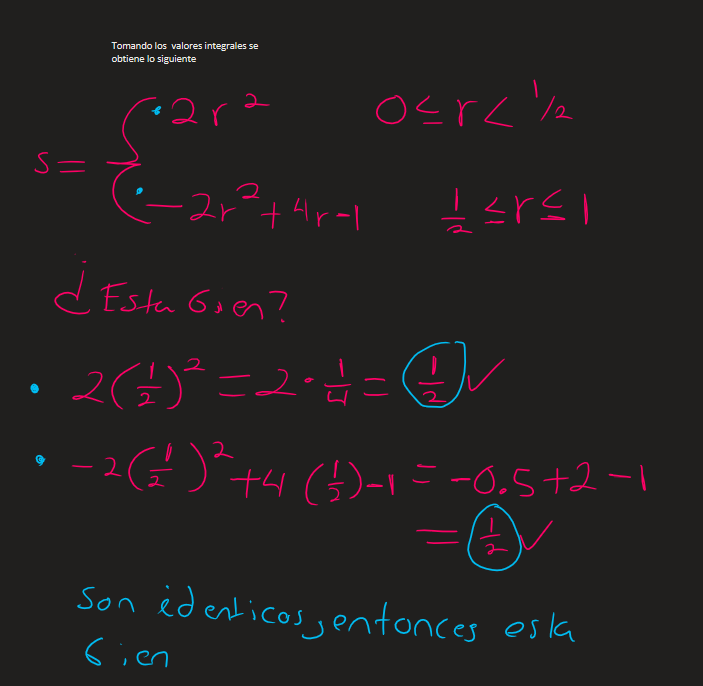 Tomando los valores integrales se
obtiene lo siguiente
s = { 2r² 0 ≤ r < 1/2
- 2r² + 4r - 1 1/2 ≤ r ≤ 1
¿Esta bien?
• 2(1/2)² = 2 · 1/4 = 1/2 ✓
• - 2(1/2)² + 4(1/2) - 1 = - 0.5 + 2 - 1
= 1/2 ✓
Son identicos, entonces esta
bien